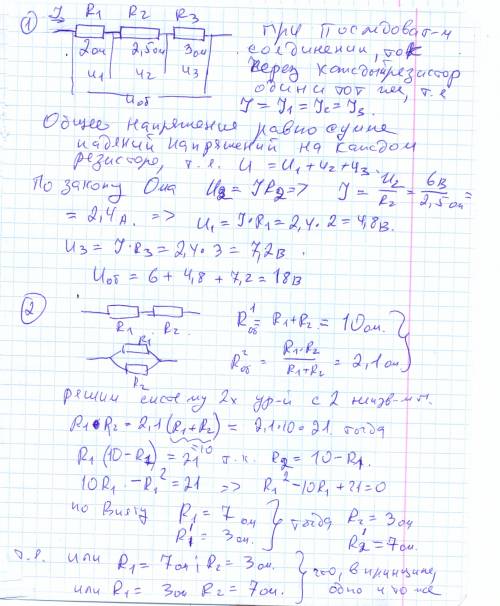 1) I R1 R2 R3
2ом 2,5ом 3ом
u1 u2 u3
Uоб
при последоват-м
соединении, ток
через каждый резистор
один и тот же, т.е
I = I1 = I2 = I3.
Общее напряжение равно сумме
падений напряжений на каждом
резисторе, т.е. U = U1 + U2 + U3.
По закону Ома U2 = IR2 => I = U2/R2 = 6В/2,5ом =
= 2,4А. => U1 = I·R1 = 2,4·2 = 4,8В.
U3 = I·R3 = 2,4·3 = 7,2В
Uоб = 6 + 4,8 + 7,2 = 18В
2) R1 R2
R¹об = R1+R2 = 10ом.
R1
R2
R²об = R1·R2/R1+R2 = 2,1ом
решим систему 2х ур-й с 2 неизв-ми.
R1·R2 = 2,1(R1+R2) = 2,1·10 = 21 тогда
=10
R1(10-R1) = 21 т.к. R2 = 10-R1.
10R1 - R1² = 21 => R1² - 10R1 + 21 = 0
по Виету R1 = 7ом тогда R2 = 3ом
R1' = 3ом. R2' = 7ом.
т.е. или R1 = 7ом; R2 = 3ом. что, в принципе,
или R1 = 3ом R2 = 7ом. одно и то же